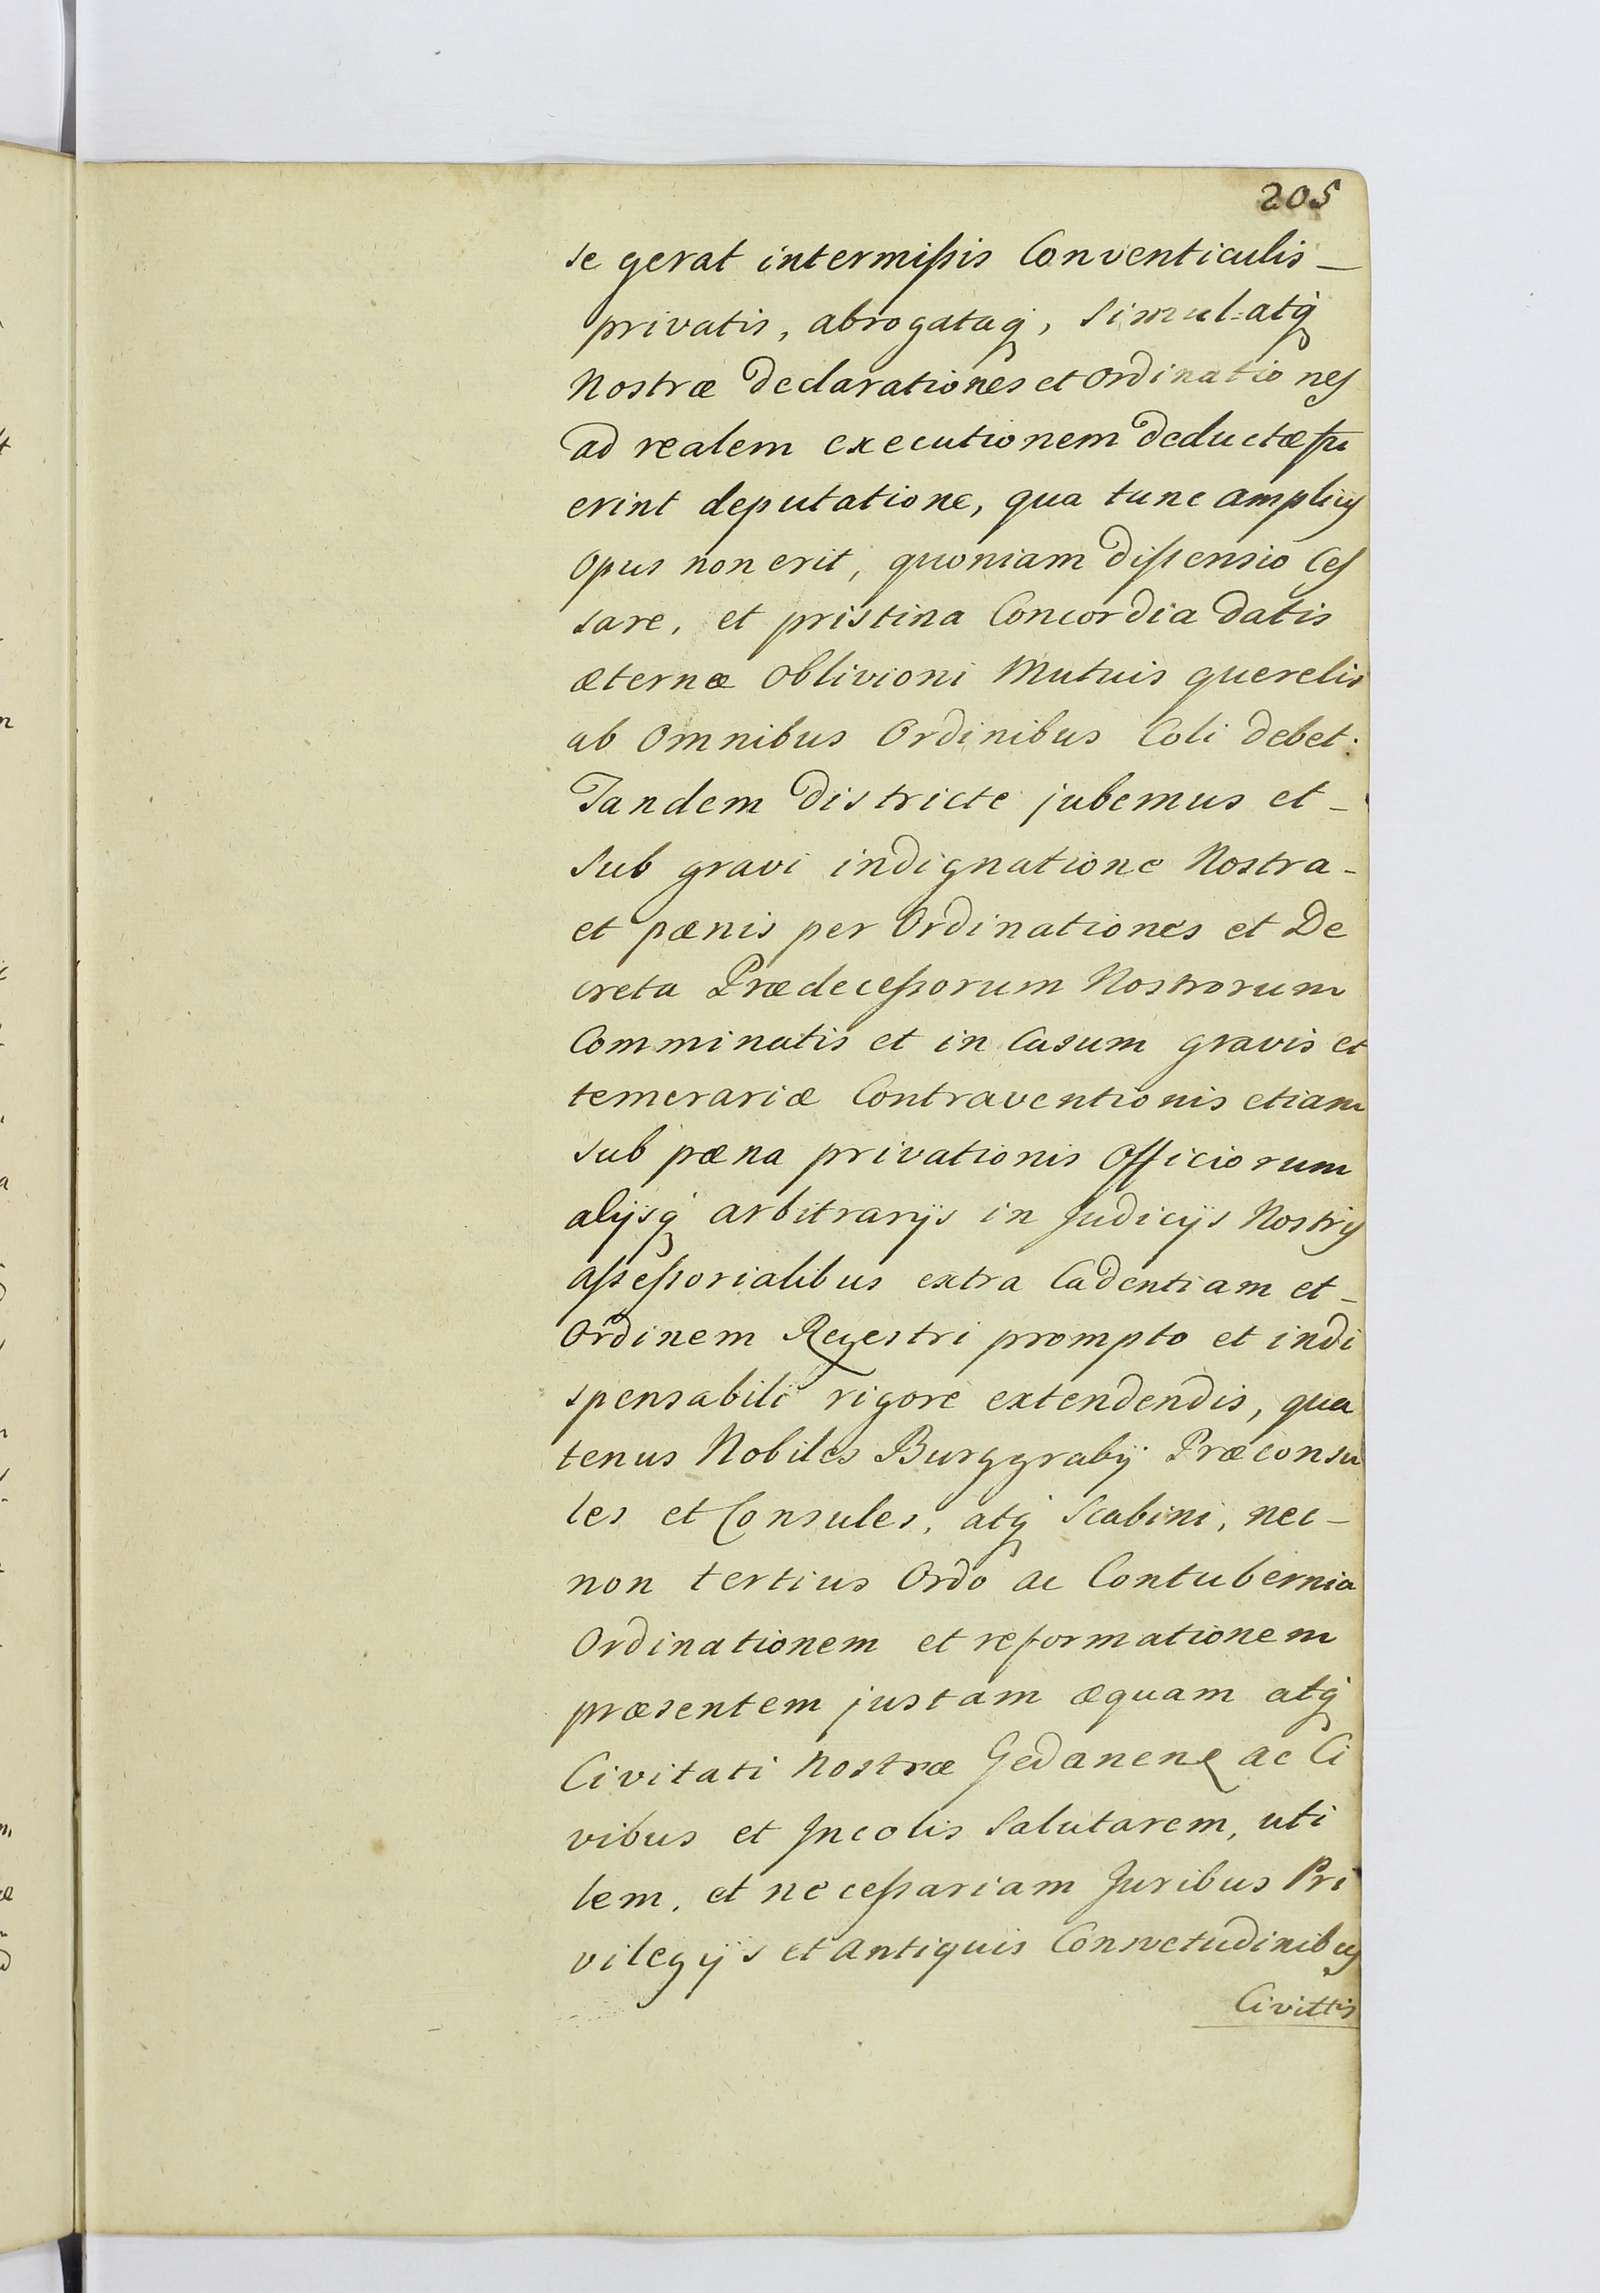 205
se gerat intermissis Conventiculis –
privatis, abrogataq, Simul=atq
Nostræ Declarationes et Ordinationes
ad realem executionem Deductæ fu
erint deputatione, qua tunc amplius
Opus non erit, quoniam Dissensio Ces
sare, et pristina Concordia Datis
æternæ Oblivioni Mutuis querelis
ab Omnibus Ordinibus Coli Debet.
Tandem Districte jubemus et –
Sub gravi indignatione Nostra –
et pænis per Ordinationes et De
creta Prædecessorum Nostrorum
Comminatis et in Casum gravis et
temerariæ Contraventionis etiam
Sub pæna privationis Officiorum
alijsq arbitrarijs in Judicijs Nostris
assessorialibus extra Cadentiam et –
Ordinem Regestri prompto et indi
spensabili rigore extendendis, qua
tenus Nobiles Burggrabij Præconsu
les et Consules, atq Scabini, nec –
non tertius Ordo ac Contubernia
Ordinationem et reformationem
præsentem justam æquam atq
Civitati Nostræ Gedanens ac Ci
vibus et Jncolis Salutarem, uti
lem, et necessariam Juribus Pri
vilegijs et Antiquis Consvetudinibus
Civittis